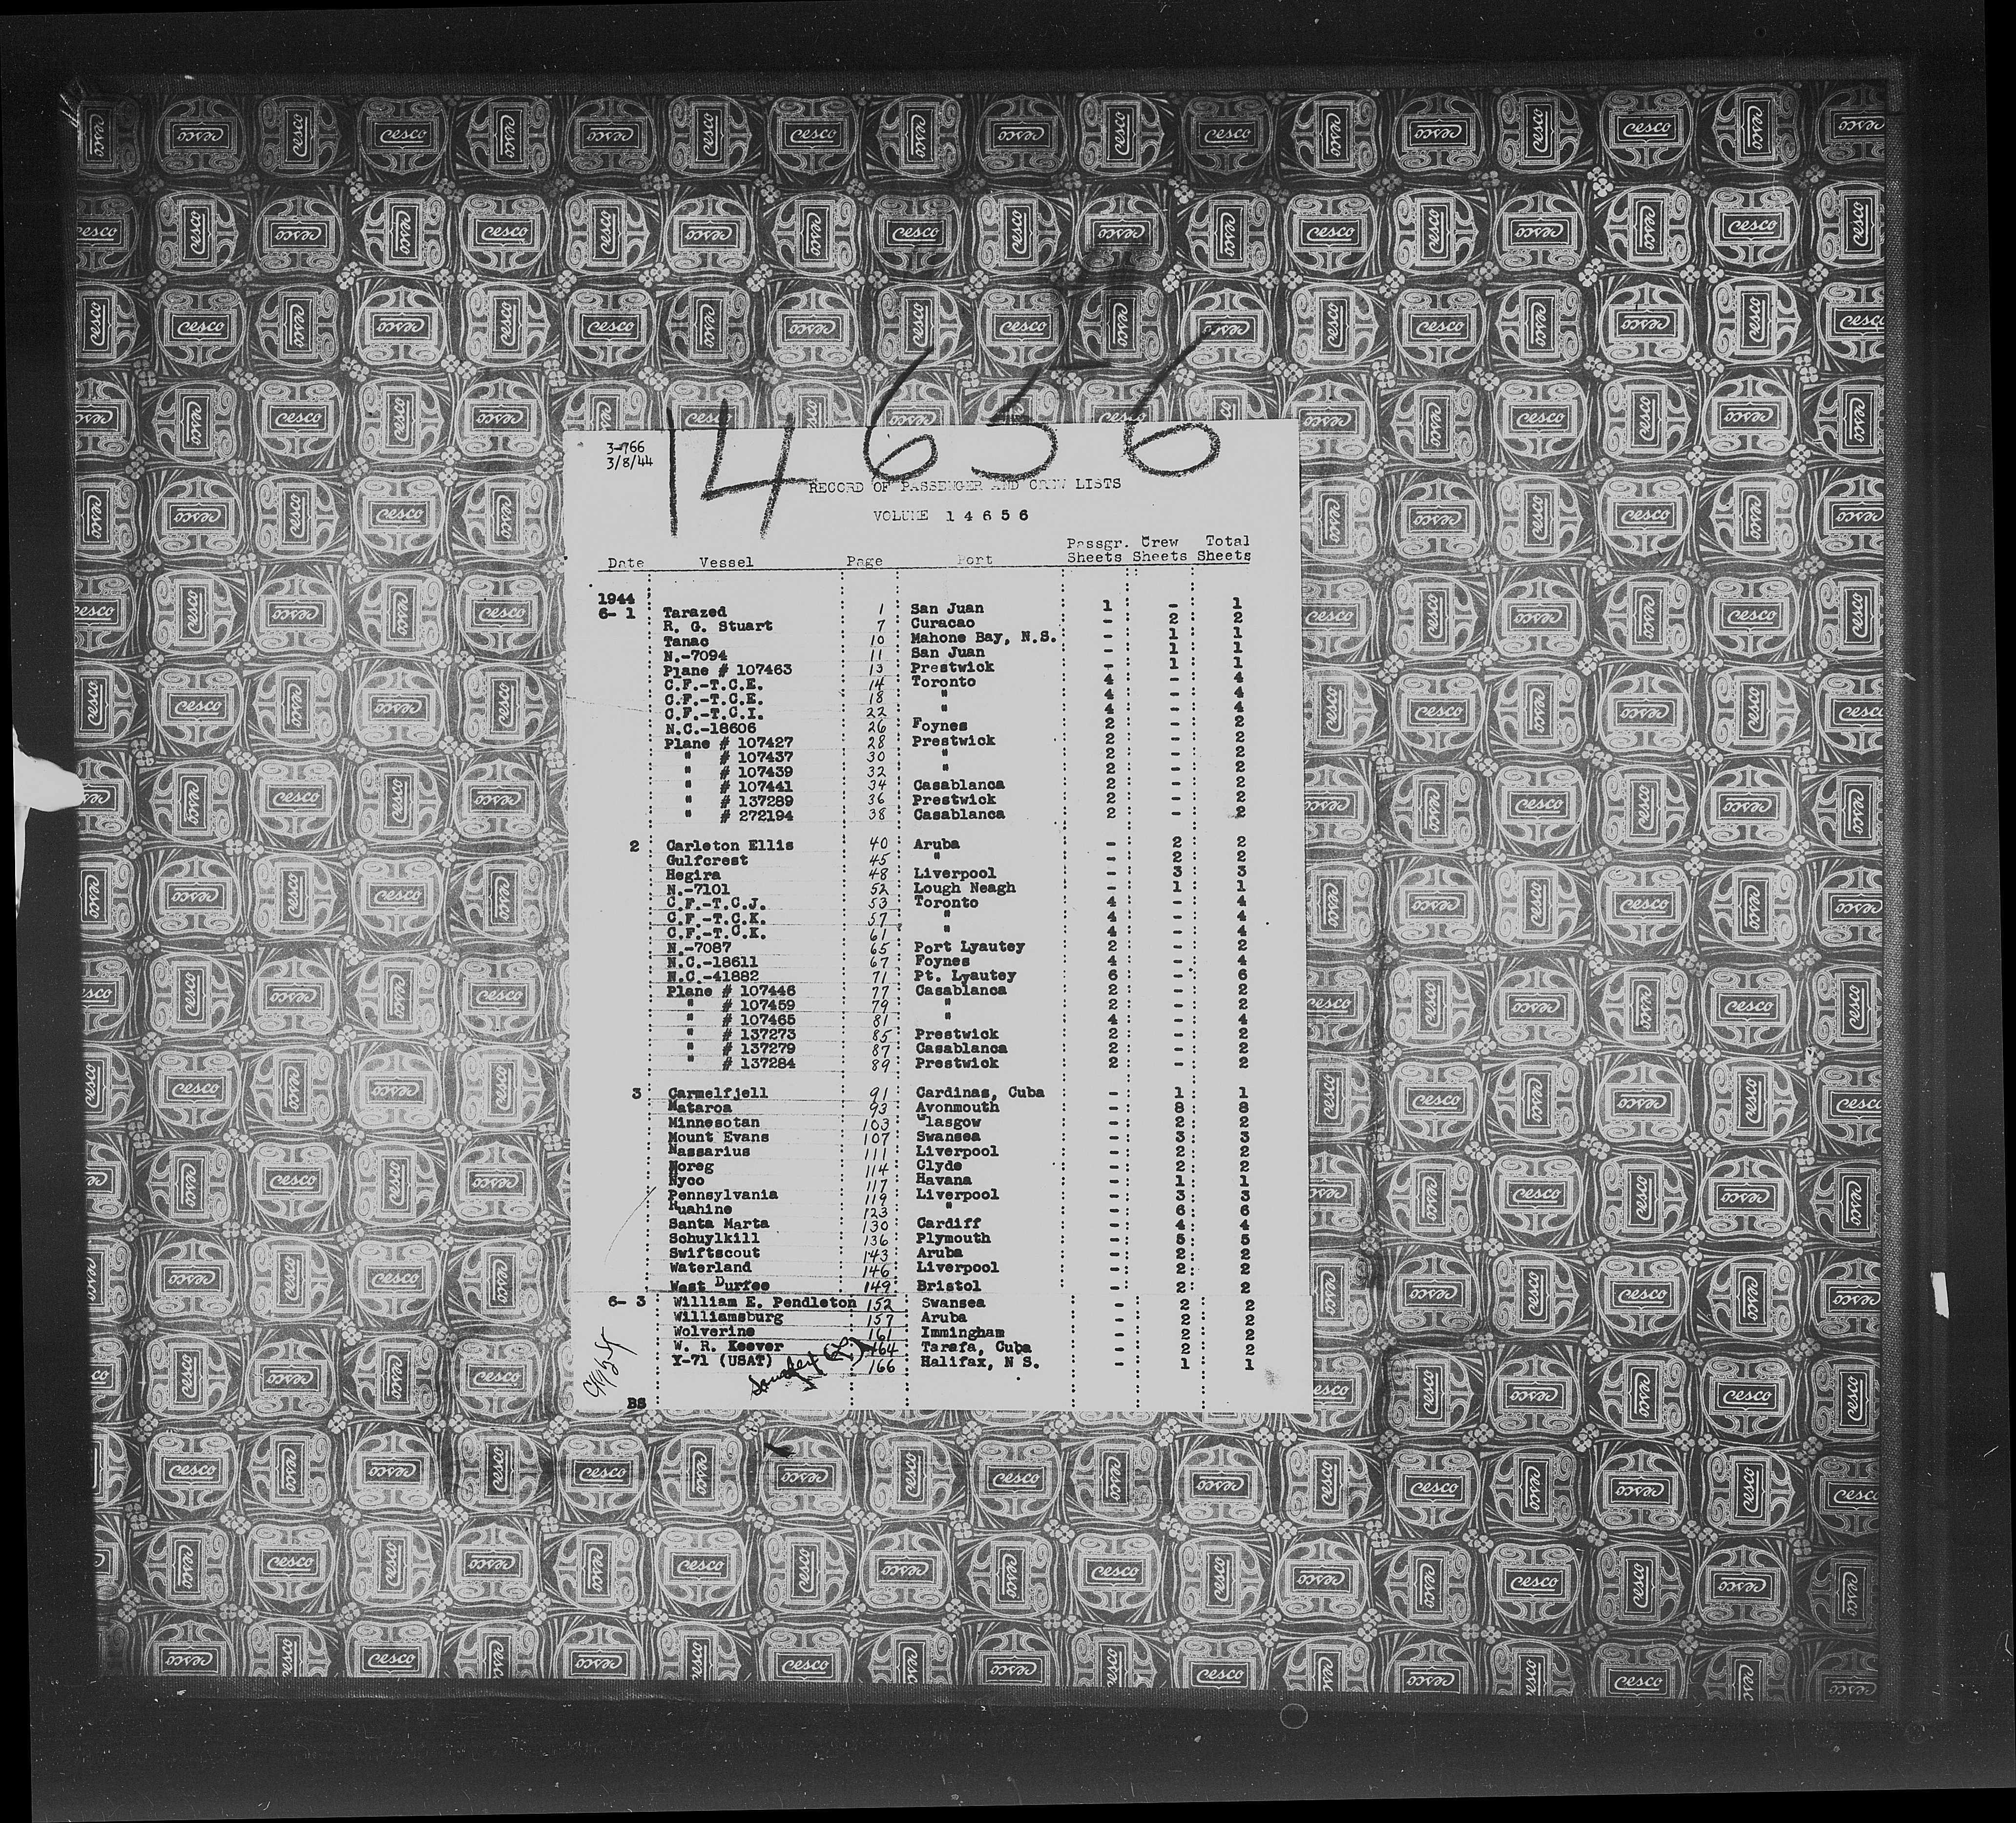 14656
3-766
3/8/44
RECORD OF PASSENGER AND CREW LISTS
VOLUME 14656
Date Vessel Page Port Passgr. Sheets Crew Sheets Total Sheets
1944
6- 1 Tarazed 1 San Juan 1 - 1
R. G. Stuart 7 Curacao - 2 2
Tanac 10 Mahone Bay, N.S. - 1 1
N.-7094 11 San Juan - 1 1
Plane # 107463 13 Prestwick - 1 1
C.F.-T.C.E. 14 Toronto 4 - 4
C.F.-T.C.E. 18 " 4 - 4
C.F.-T.C.I. 22 " 4 - 4
N.C.-18606 26 Foynes 2 - 2
Plane # 107427 28 Prestwick 2 - 2
" # 107437 30 " 2 - 2
" # 107439 32 " 2 - 2
" # 107441 34 Casablanca 2 - 2
" # 137289 36 Prestwick 2 - 2
" # 272194 38 Casablanca 2 - 2
2 Carleton Ellis 40 Aruba - 2 2
Gulfcrest 45 " - 2 2
Hegira 48 Liverpool - 3 3
N.-7101 52 Lough Neagh - 1 1
C.F.-T.C.J. 53 Toronto 4 - 4
C.F.-T.C.K. 57 " 4 - 4
C.F.-T.C.K. 61 " 4 - 4
N.-7087 65 Port Lyautey 2 - 2
N.C.-18611 67 Foynes 4 - 4
N.C.-41882 71 Pt. Lyautey 6 - 6
Plane # 107446 77 Casablanca 2 - 2
" # 107459 79 " 2 - 2
" # 107465 81 " 4 - 4
" # 137273 85 Prestwick 2 - 2
" # 137279 87 Casablanca 2 - 2
" # 137284 89 Prestwick 2 - 2
3 Carmelfjell 91 Cardinas, Cuba - 1 1
Mataroa 93 Avonmouth - 8 8
Minnesotan 103 Glasgow - 2 2
Mount Evans 107 Swansea - 3 3
Nassarius 111 Liverpool - 2 2
Noreg 114 Clyde - 2 2
Nyco 117 Havana - 1 1
Pennsylvania 119 Liverpool - 3 3
Ruahine 123 " - 6 6
Santa Marta 130 Cardiff - 4 4
Schuylkill 136 Plymouth - 5 5
Swiftscout 143 Aruba - 2 2
Waterland 146 Liverpool - 2 2
West Durfee 149 Bristol - 2 2
6- 3 William E. Pendleton 152 Swansea - 2 2
Williamsburg 157 Aruba - 2 2
Wolverine 161 Immingham - 2 2
W. R. Keever 164 Tarafa, Cuba - 2 2
Y-71 (USAT) 166 Halifax, N S. - 1 1
BS